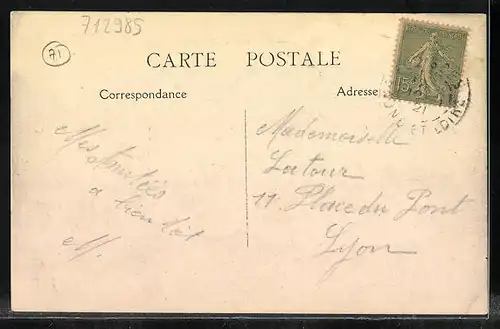 712985
71
CARTE POSTALE
Correspondance
Adresse
15
21
ET LOIRE
Mes amitiés
a bien tôt
M.
Mademoiselle
Latour
11. Place du Pont
Lyon